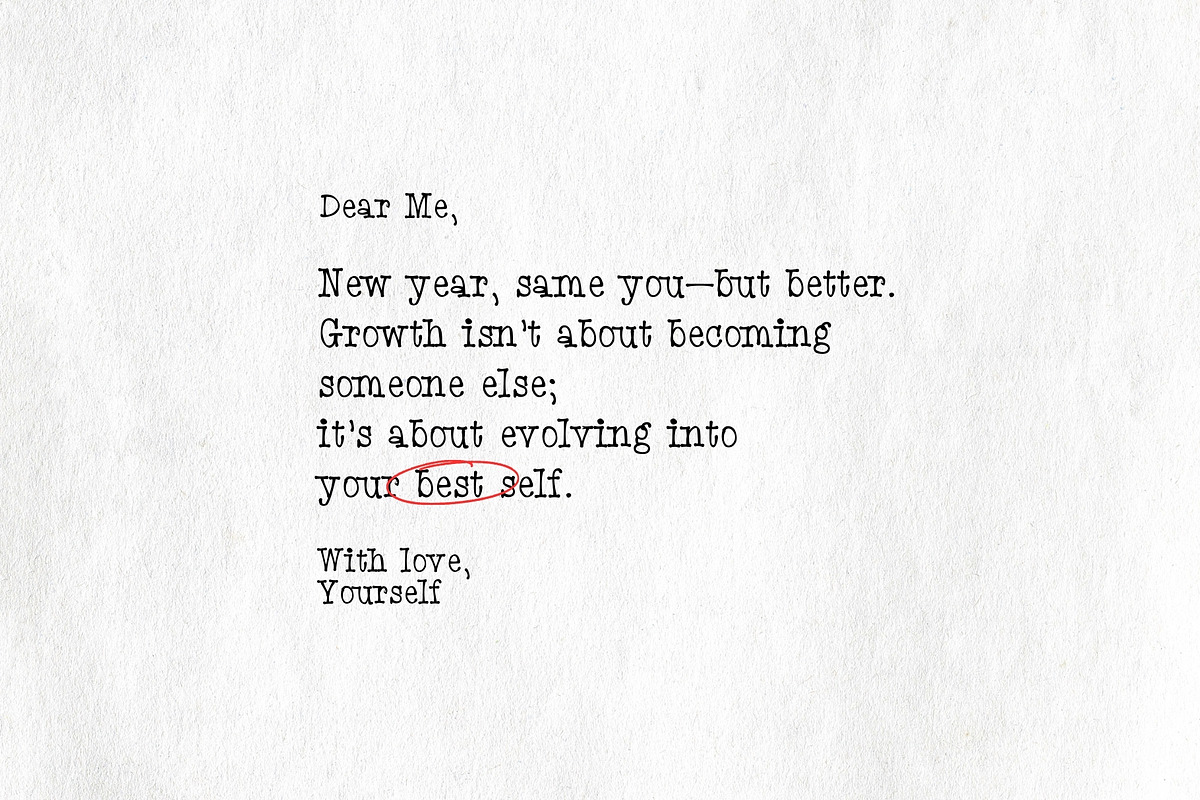 Dear Me,
New year, same you—but better.
Growth isn't about becoming
someone else;
it's about evolving into
your best self.
With love,
Yourself